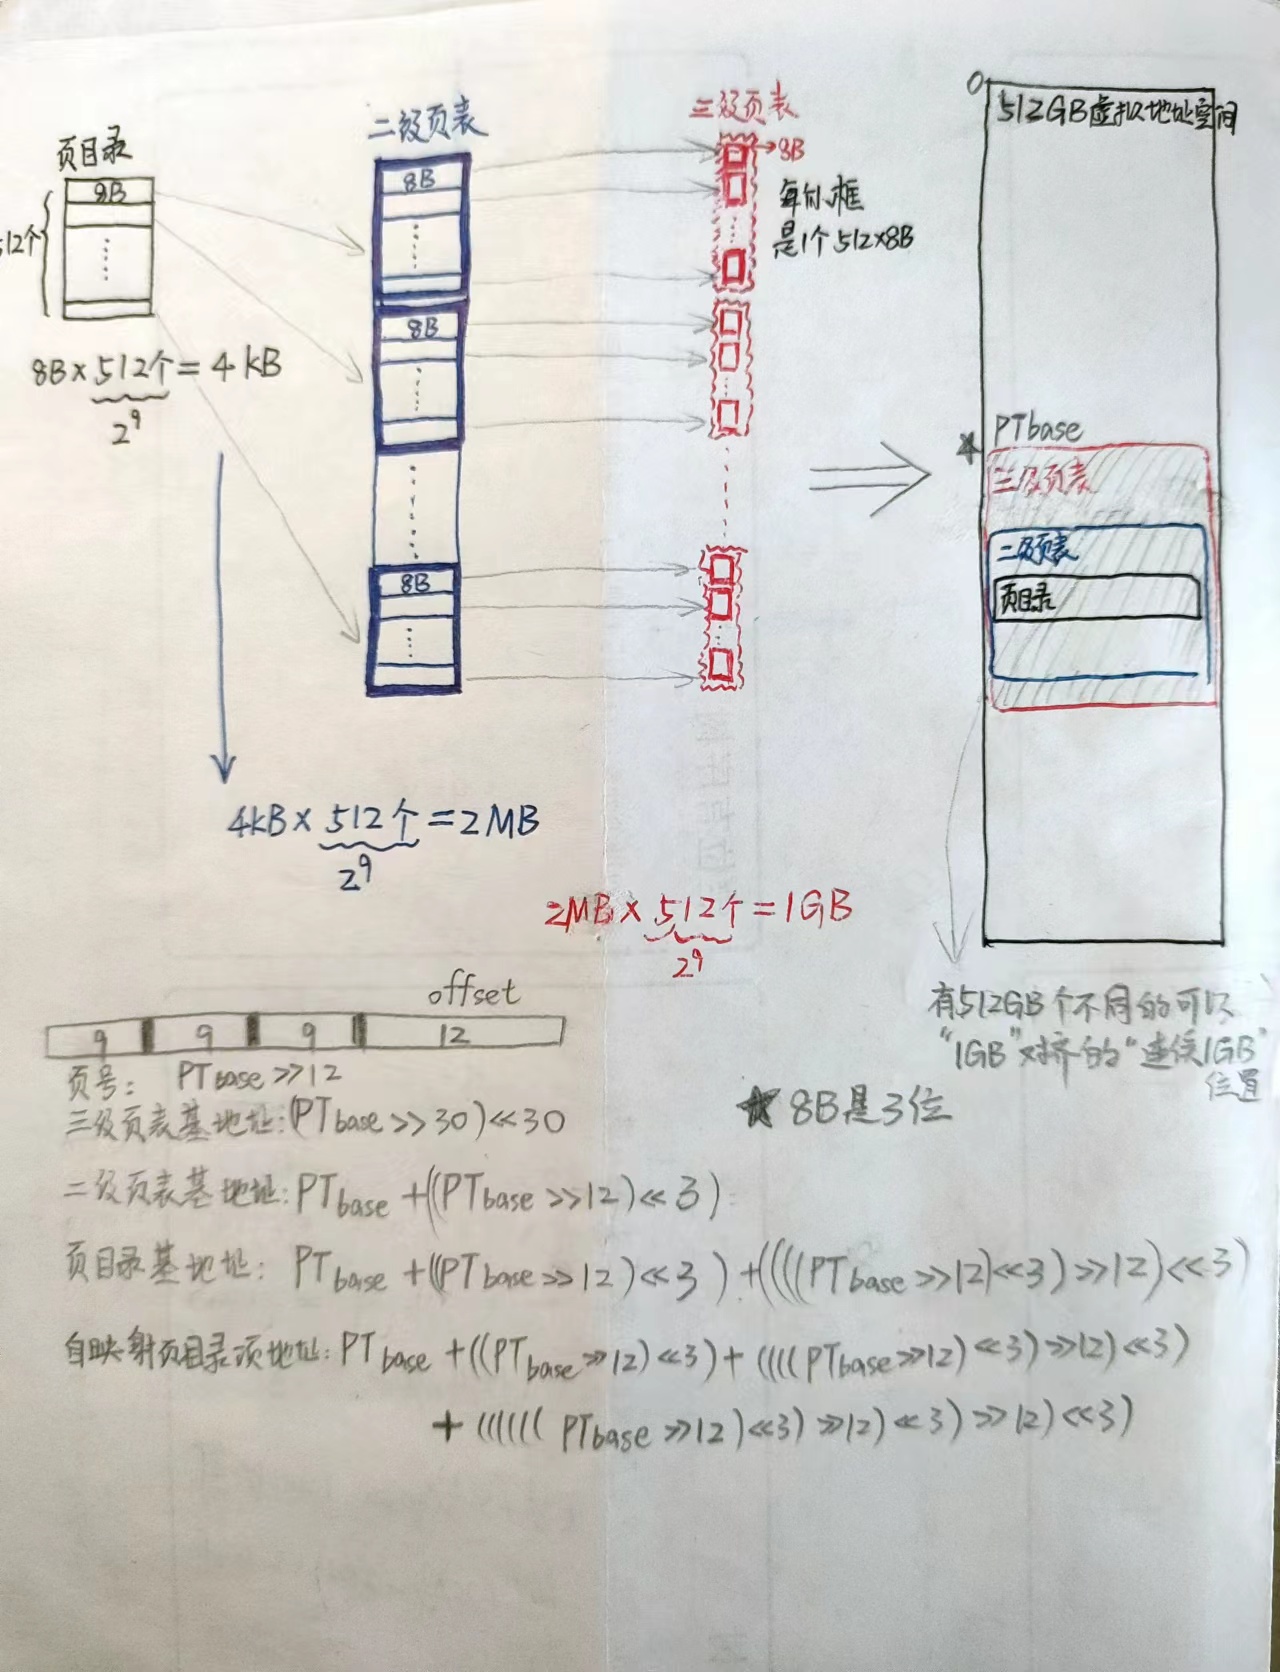 页目录
8B
512个
8B×512个=4kB
2^9
二级页表
8B
8B
8B
三级页表
→8B
每个小框
是1个512×8B
0
512GB虚拟地址空间
PTbase
三级页表
二级页表
页目录
4kB×512个=2MB
2^9
2MB×512个=1GB
2^9
有512GB个不同的可以
"1GB"对齐的"连续1GB"
位置
offset
9 9 9 12
页号: PTbase>>12
★ 8B是3位
三级页表基地址:(PTbase>>30)<<30
二级页表基地址:PTbase+((PTbase>>12)<<3)
页目录基地址: PTbase+((PTbase>>12)<<3)+((((PTbase>>12)<<3)>>12)<<3)
自映射页目录项地址:PTbase+((PTbase>>12)<<3)+((((PTbase>>12)<<3)>>12)<<3)
+((((((PTbase>>12)<<3)>>12)<<3)>>12)<<3)